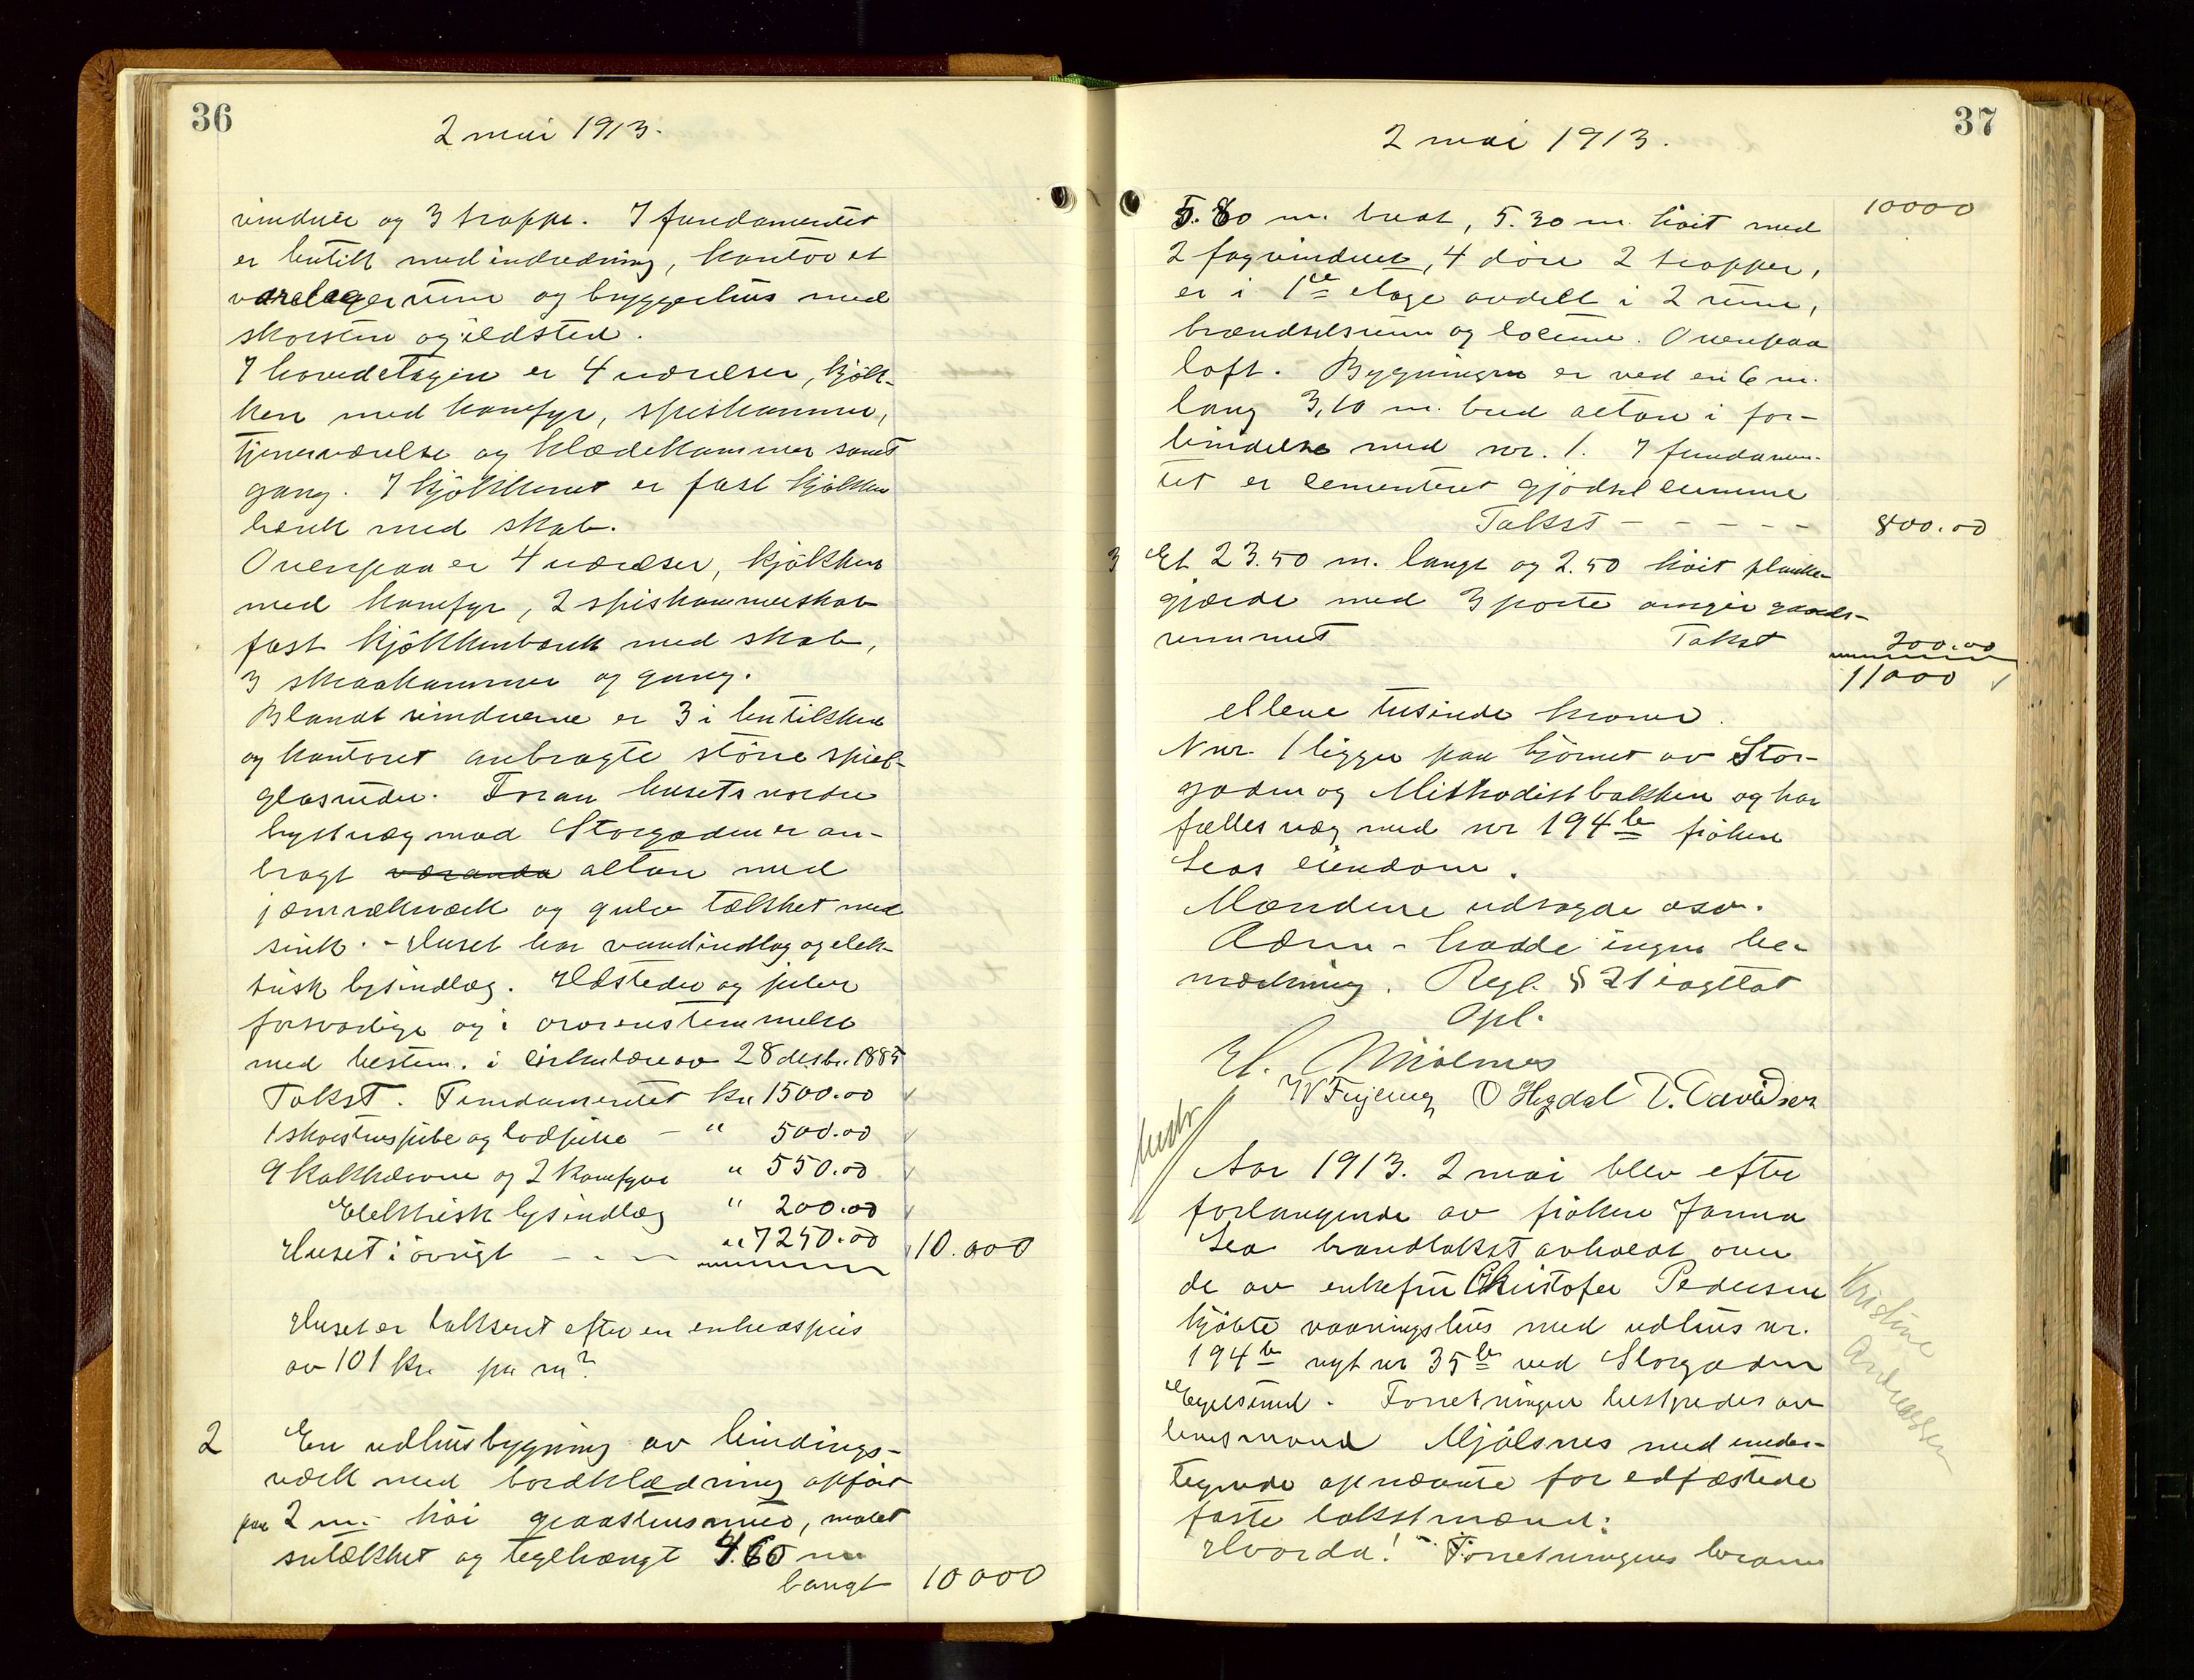 36
2 mai 1913.
vinduer og 3 trappe. I fundamentet
er butik med indredning, kontor et
varelagerrum og bryggerhus med
skorsten og ildsted.
I hovedetagen er 4 værelser, kjøk-
ken med komfyr, spiskammer,
tjenerværelse og klædekammer samt
gang. I kjøkkenet er fast kjøkken
bænk med skab.
Ovenpaa er 4 værelser, kjøkken
med komfyr, 2 spiskammerskab
fast kjøkkenbænk med skab,
3 skraakammer og gang.
Blandt vinduerne er 3 i butikken
og kontoret anbragte større speil-
glasruder. Foran husets nordre
mod Storgaden er an-
bragt veranda altan med
jernrækværk og gulv tækket med
sink. - Huset har vandindlæg og elek-
trisk lysindlæg. Ildsteder og piber
forsvarlige og i overensstemmelse
med bestem. i cirkulære av 28 desbr. 1885
Takst. Fundamentet kr. 1500.00
1 skorstenspibe og lodpibe - " 500.00
9 kakkelovne og 2 komfyre " 550.00
Elektrisk lysindlæg " 200.00
Huset i øvrigt - - - " 7250.00 10.000
Huset er takseret efter en enhedspris
av 101 kr. pr m²
2 En udhusbygning av bindings-
verk med bordklædning opført
paa 2 m. høi graastensmur, malet
sutækket og teglhængt 4.65 m
langt 10000
37
2 mai 1913.
10000
5.80 m. bredt, 5.30 m. høit med
2 fagvinduer, 4 døre 2 trapper,
er i 1ste etage avdelt i 2 rum,
brændselsrum og locum. Ovenpaa
loft. Bygningen er ved en 6 m.
lang 3,10 m. bred altan i for-
bindelse med nr. 1. I fundamen-
tet er cementeret gjødselkumme
Takst - - - - - 800.00
3 Et 23.50 m. langt og 2.50 høit planke-
gjærde med 3 porte omgir gaards-
rummet Takst 200.00
11000
elleve tusinde kroner.
Nr. 1 ligger paa hjørnet av Stor-
gaden og Methodistbakken og har
fælles væg med nr 194 b frøken
Leas eiendom.
Mændene udsagde osv.
Adm. hadde ingen be-
merkning. Regl. § 21 iagttat
Opl.
El. Mjølsnes
O Hegdal T. Davidsen
Aar 1913. 2 mai blev efter
forlangende av frøken Janna
Lea brandtakst avholdt over
de av enkefru Christofer Pedersen
kjøbte vaaningshus med udhus nr.
194 b nyt nr 35 b ved Storgaden
Egersund. Forretningen bestyredes av
lensmand Mjølsnes med under-
tegnede opnævnte for edfæstede
faste takstmænd:
Hvorda! - Forretningens
Kristine
Andreassen